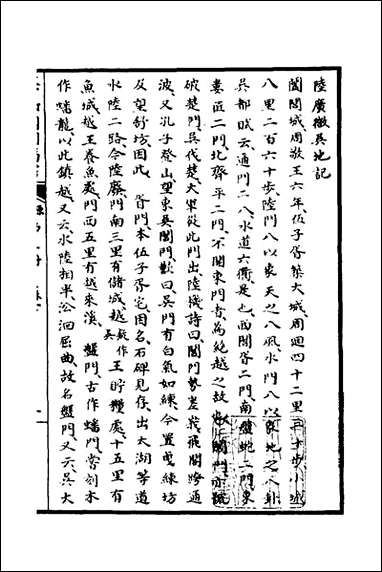 陸廣微吳地記
闔閭城周敬王六年伍子胥築大城周迴四十二里三十步小城
八里二百六十步陸門八以象天之八風水門八以象地之八卦
吳都賦云通門二八水道六衢是也西閶胥二門南盤蛇二門東
婁匠二門北齊平二門不開東門者為絕越之故也
破楚門吳伐楚大軍從此門出陸機詩曰閶門勢差峩飛閣跨通
波又孔子登山望東吳閶門歎曰吳門有白氣如練今置曳練坊
及望舒坊因此 胥門本伍子胥宅因名石碑見存出太湖等道
水陸二路今陸廢門南三里有儲城越疑作吳王貯糧處十五里有
魚城越王養魚處門西五里有越來溪 盤門古作蟠門嘗刻木
作蟠龍以此鎮越又云水陸相半沿洄屈曲故名盤門又云吳大